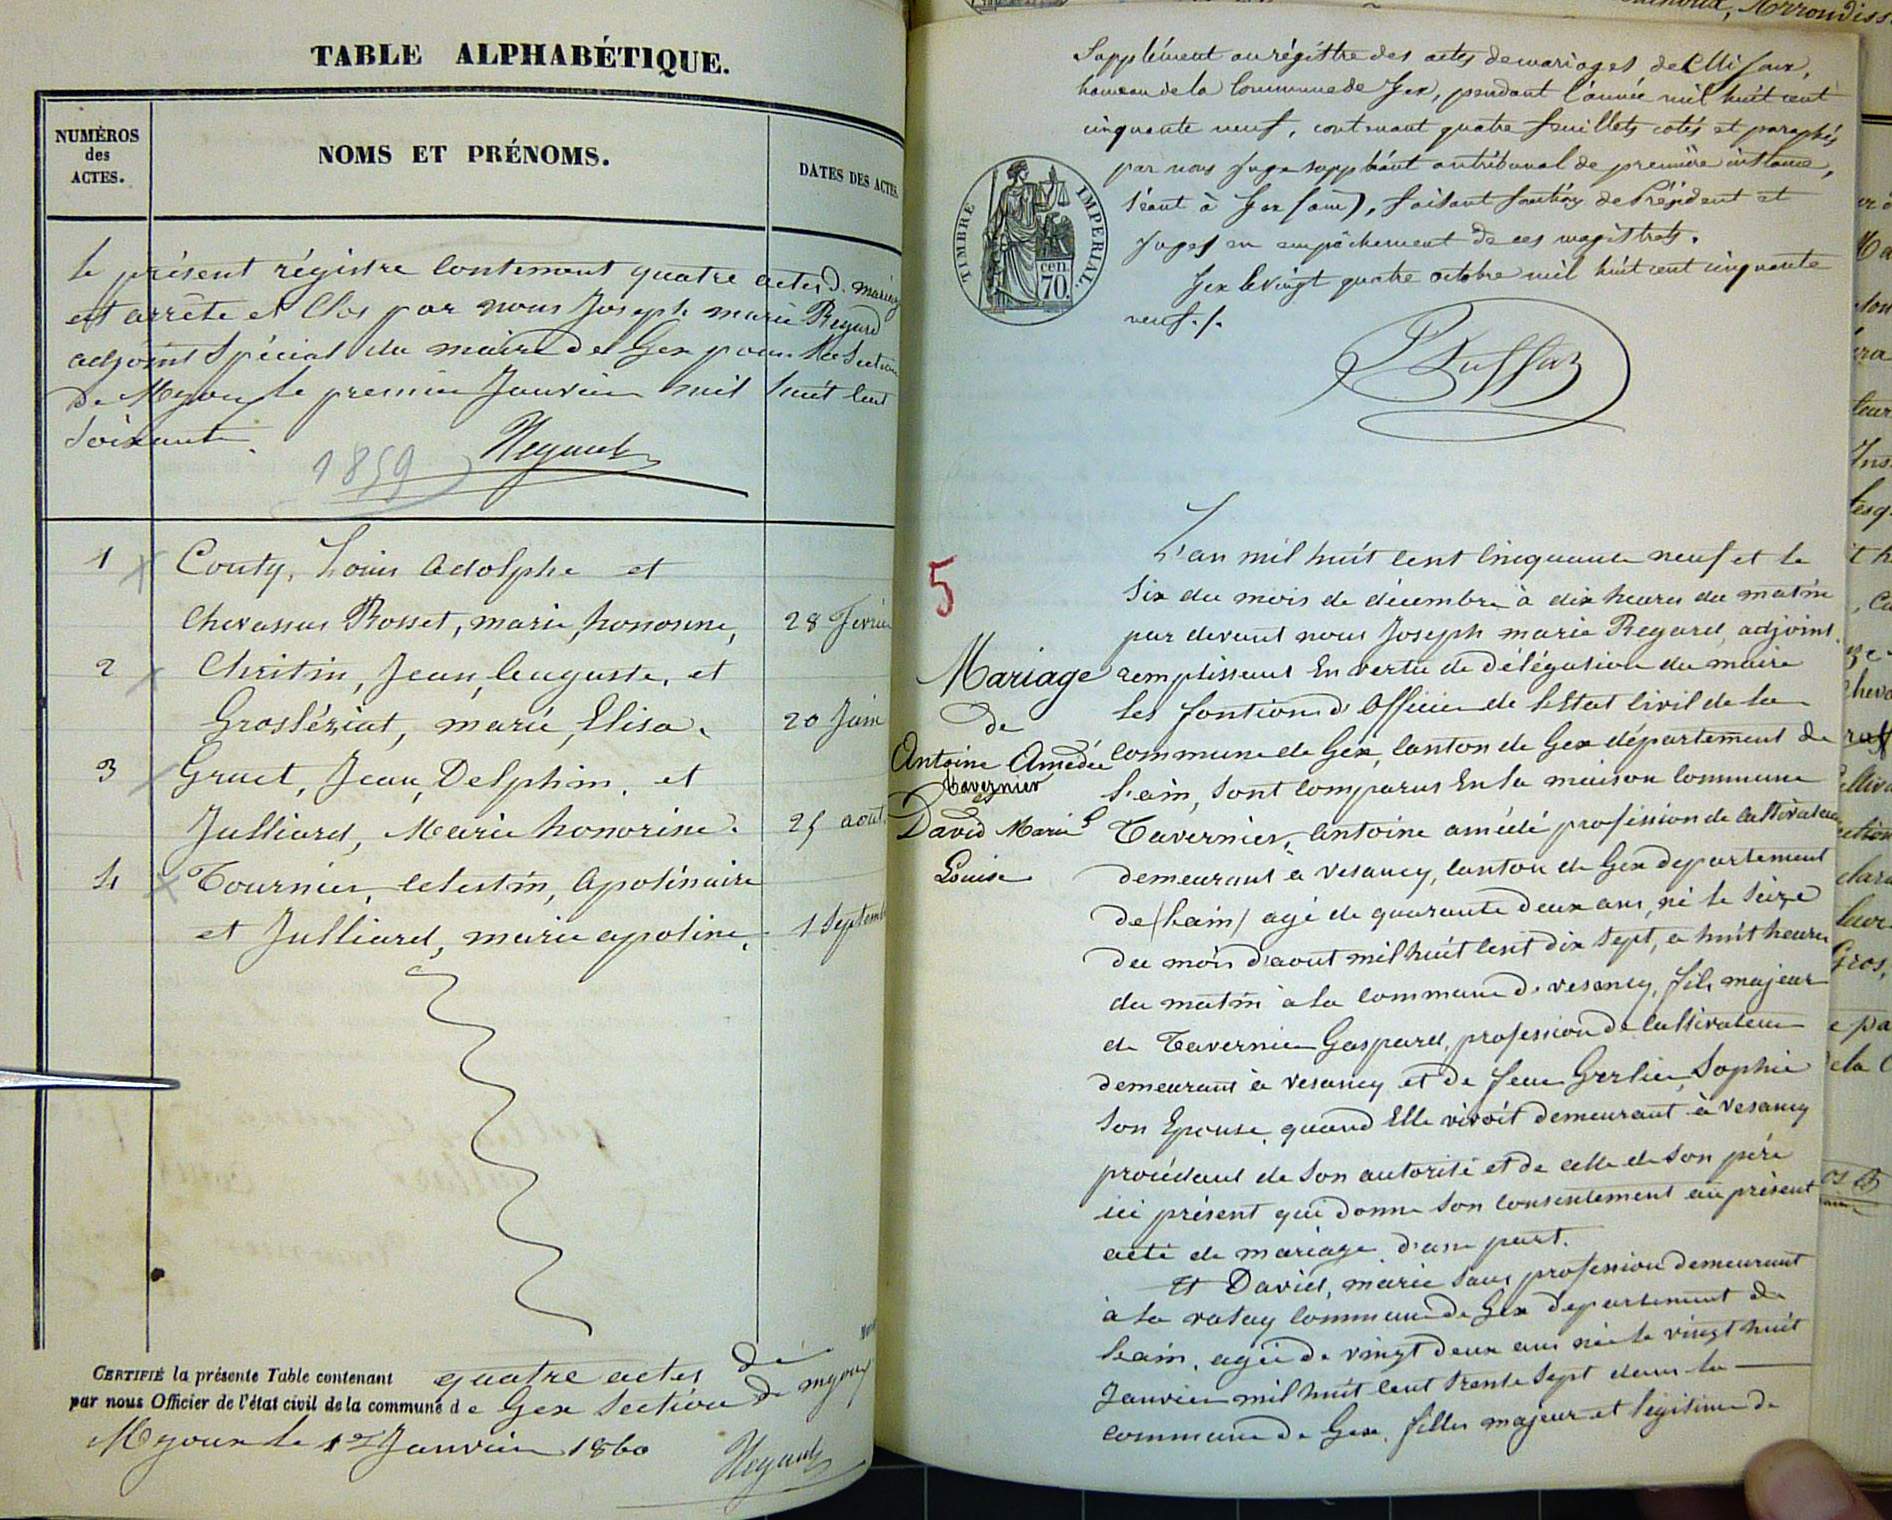 TABLE ALPHABÉTIQUE.
NUMÉROS
des
ACTES.
NOMS ET PRÉNOMS.
DATES DES ACTES.
le présent régistre contenant quatre actes d. mariage
est arrêté et Clos par nous Joseph marie Regard
adjoint Spécial du maire de Gex pour la Section
de Mijoux le premier Janvier mil huit cent
Soixante.
Regard
1859
1 Couty, Louis Adolphe et
Chevassus Rosset, marie, honorine, 28 Fevrier
2 Christin, Jean, Auguste, et
Grosléziat, marie, Elisa. 20 Juin
3 Gruet, Jean, Delphin, et
Julliard, Marie honorine. 25 aout
4 Tournier, Celestin, Apolinaire
et Julliard, marie apoline, 1 Septembre
CERTIFIÉ la présente Table contenant quatre actes de
par nous Officier de l'état civil de la commune de Gex Section de mijoux
Mijoux le 1er Janvier 1860
Regard
Supplément au régistre des actes de mariages de Mijoux,
hameau de la Commune de Gex, pendant l'année mil huit cent
cinquante neuf, contenant quatre feuillets cotés et paraphés
par nous Juge suppléant au tribunal de première instance,
séant à Gex (ain), faisant fonction de Président et
Juges en empêchement de ces magistrats.
Gex le vingt quatre octobre mil huit cent cinquante
neuf./.
TIMBRE IMPÉRIAL.
70. cen.
5
Mariage
de
Antoine Amédée
Tavernier
et
David Marie
Louise
L'an mil huit cent cinquante neuf et le
six du mois de décembre à dix heures du matin
par devant nous Joseph marie Regard, adjoint
remplissant En vertu de délégation du maire
les fontions d'Officier de l'Etat Civil de la
commune de Gex, Canton de Gex département de
l'ain, sont comparus En la maison Commune
Tavernier, Antoine amédé profession de cultivateur
demeurant à Vesancy, canton de Gex departement
de (l'ain) agé de quarante deux ans, né le seize
du mois d'aout mil huit cent dix sept, a huit heures
du matin à la commune d. vesancy, fils majeur
de Tavernier Gaspard, profession de Cultivateur
demeurant à vesancy et de feue Grelier, Sophie
son Epouse, quand Elle vivoit demeurant à Vesancy
procédant de son autorité et de celle de son père
ici présent qui donne son consentement au présent
acte de mariage d'une part.
Et David, marie sans profession demeurant
à la vatay commune de Gex département de
l'ain, agée de vingt deux ans née le vingt huit
Janvier mil huit cent trente sept dans la
commune de Gex, fille majeur et légitime de